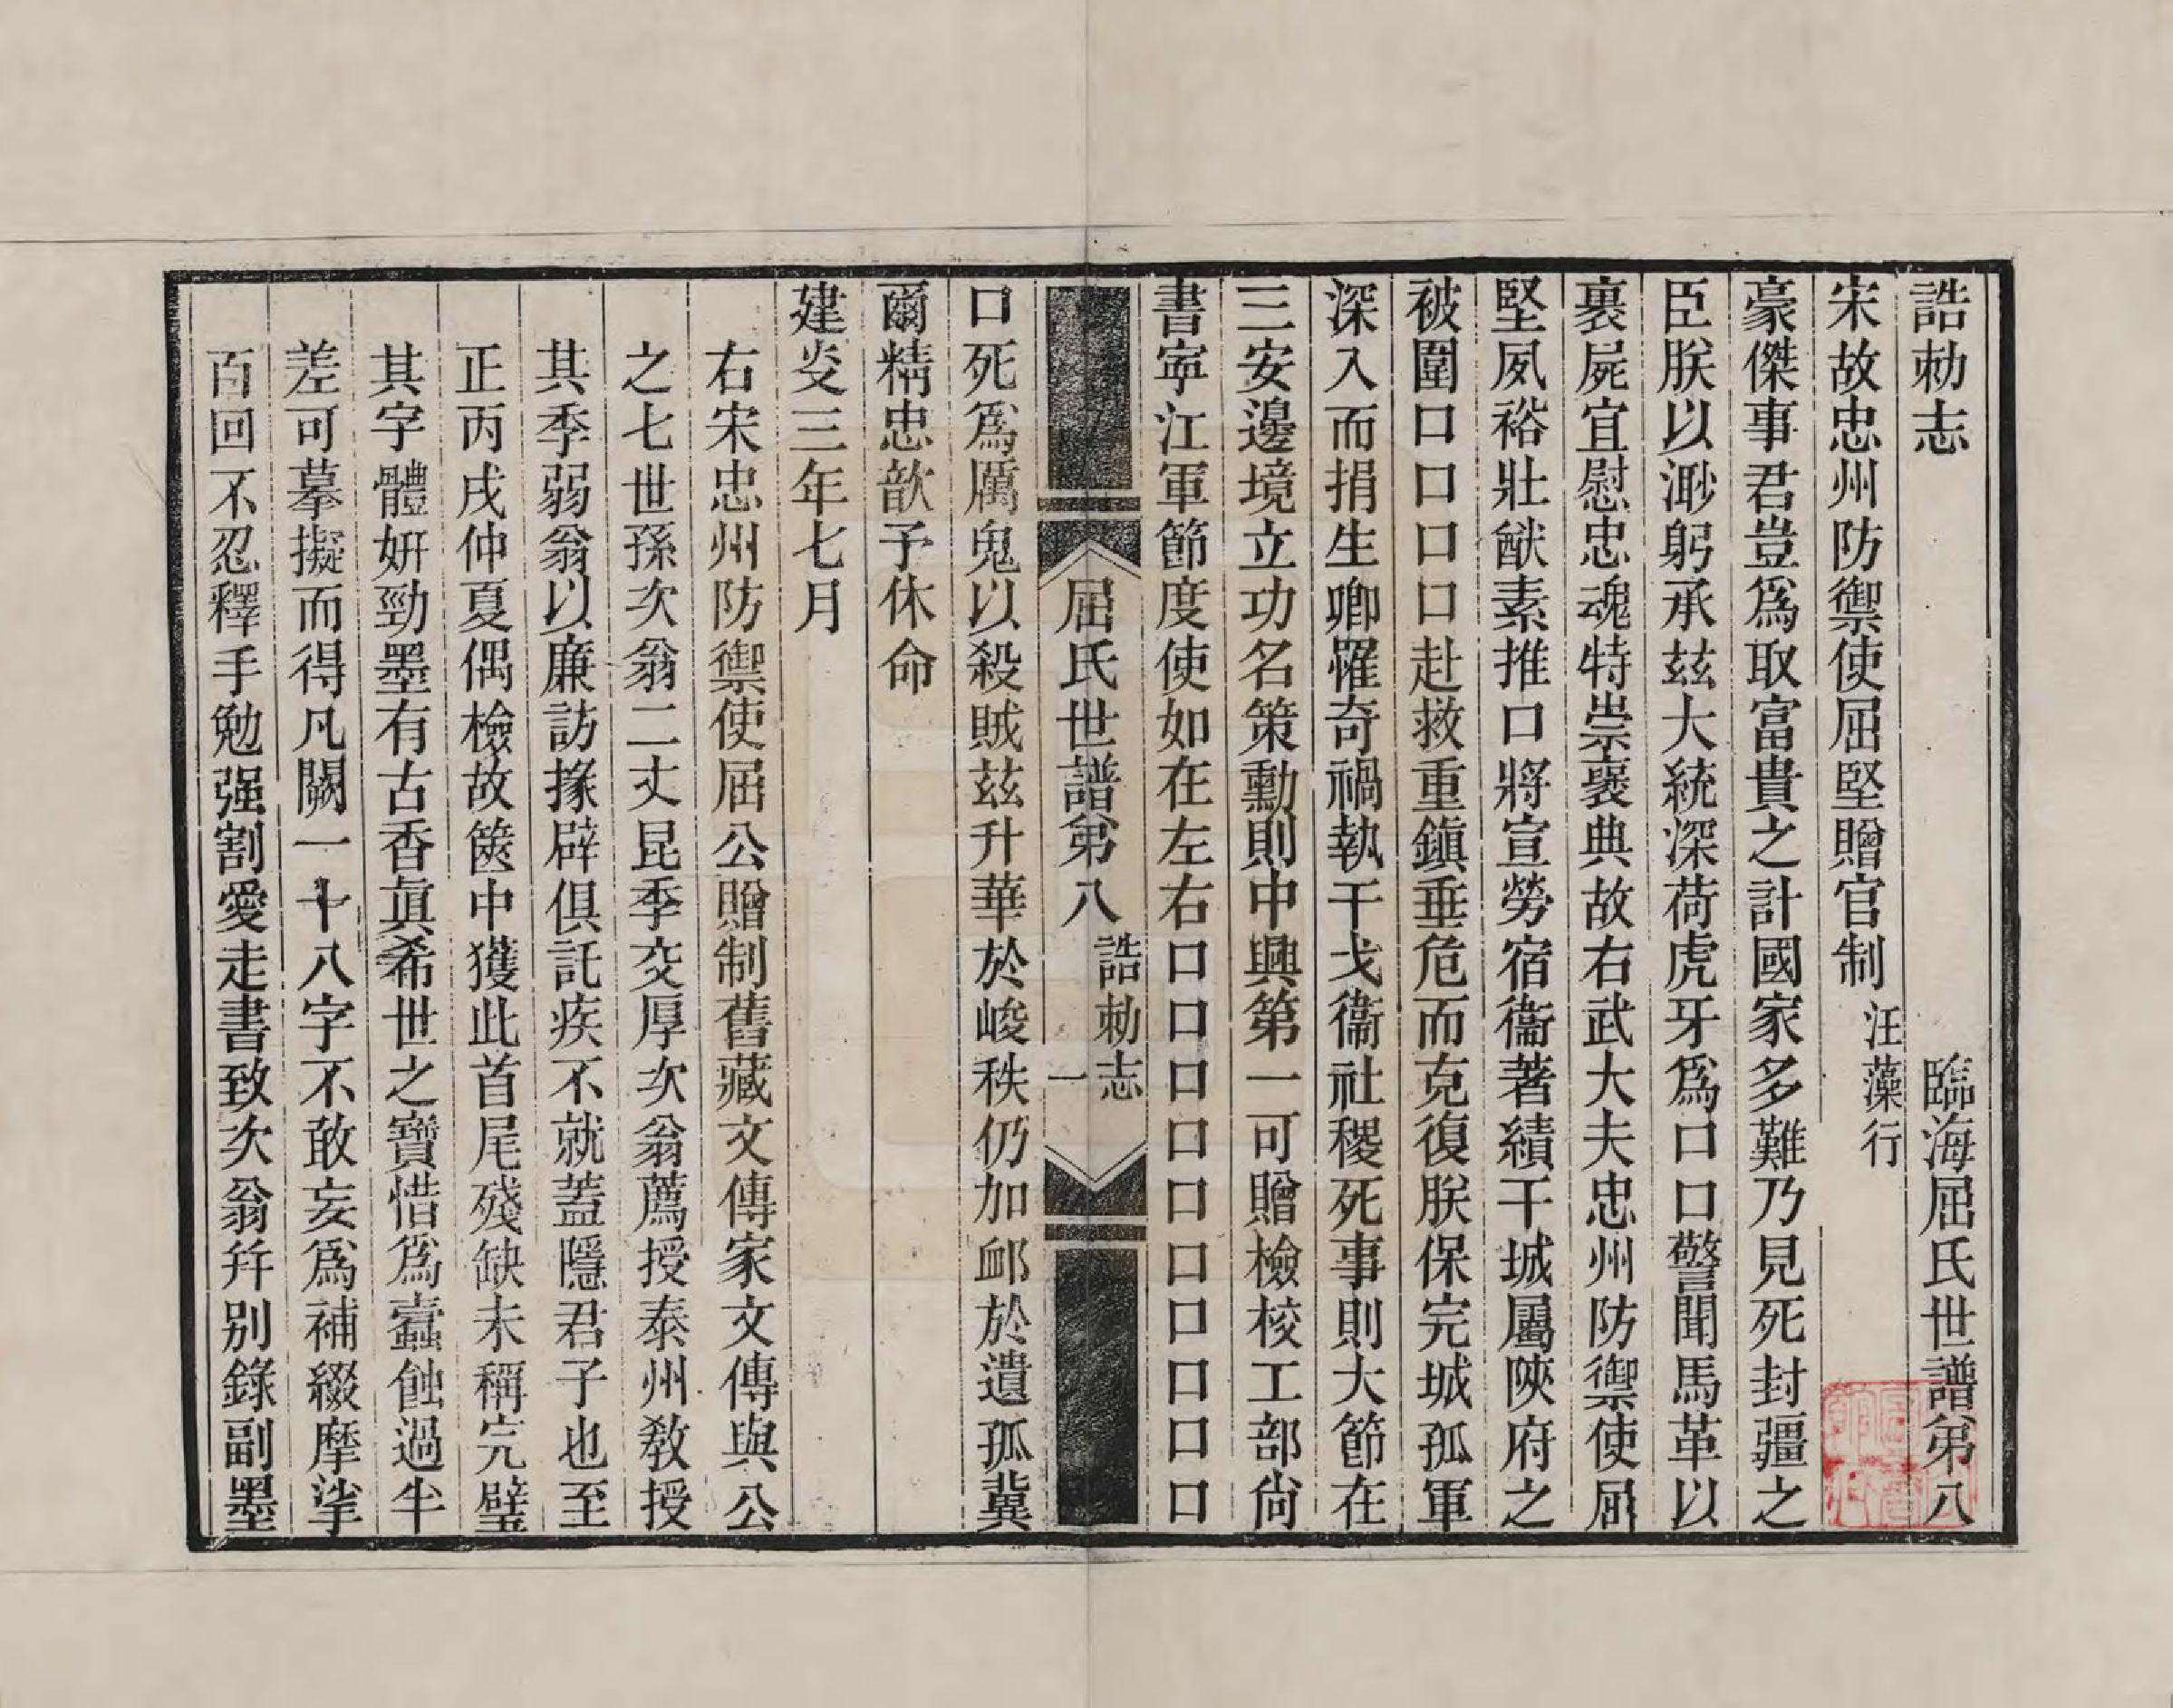 誥勅志　臨海屈氏世譜弟八
宋故忠州防禦使屈堅贈官制　汪藻行
豪傑事君豈爲取富貴之計國家多難乃見死封疆之
臣朕以渺躬承玆大統深荷虎牙爲口口警聞馬革以
裹屍宜慰忠魂特崇褒典故右武大夫忠州防禦使屈
堅夙裕壯猷素推口將宣勞宿衞著績干城屬陝府之
被圍口口口口赴救重鎮垂危而克復朕保完城孤軍
深入而捐生卿罹奇禍執干戈衞社稷死事則大節在
三安邊境立功名策勳則中興第一可贈檢校工部尙
書寧江軍節度使如在左右口口口口口口口口口口
口死爲厲鬼以殺賊玆升華於峻秩仍加卹於遺孤冀
爾精忠歆予休命
建炎三年七月
右宋忠州防禦使屈公贈制舊藏文傳家文傳與公
之七世孫次翁二丈昆季交厚次翁薦授泰州敎授
其季弱翁以廉訪掾辟俱託疾不就蓋隱君子也至
正丙戌仲夏偶檢故篋中獲此首尾殘缺未稱完璧
其字體妍勁墨有古香眞希世之寶惜爲蠹蝕過半
差可摹擬而得凡闕一十八字不敢妄爲補綴摩挲
百回不忍釋手勉强割愛走書致次翁幷別錄副墨
屈氏世譜弟八　誥勅志　一